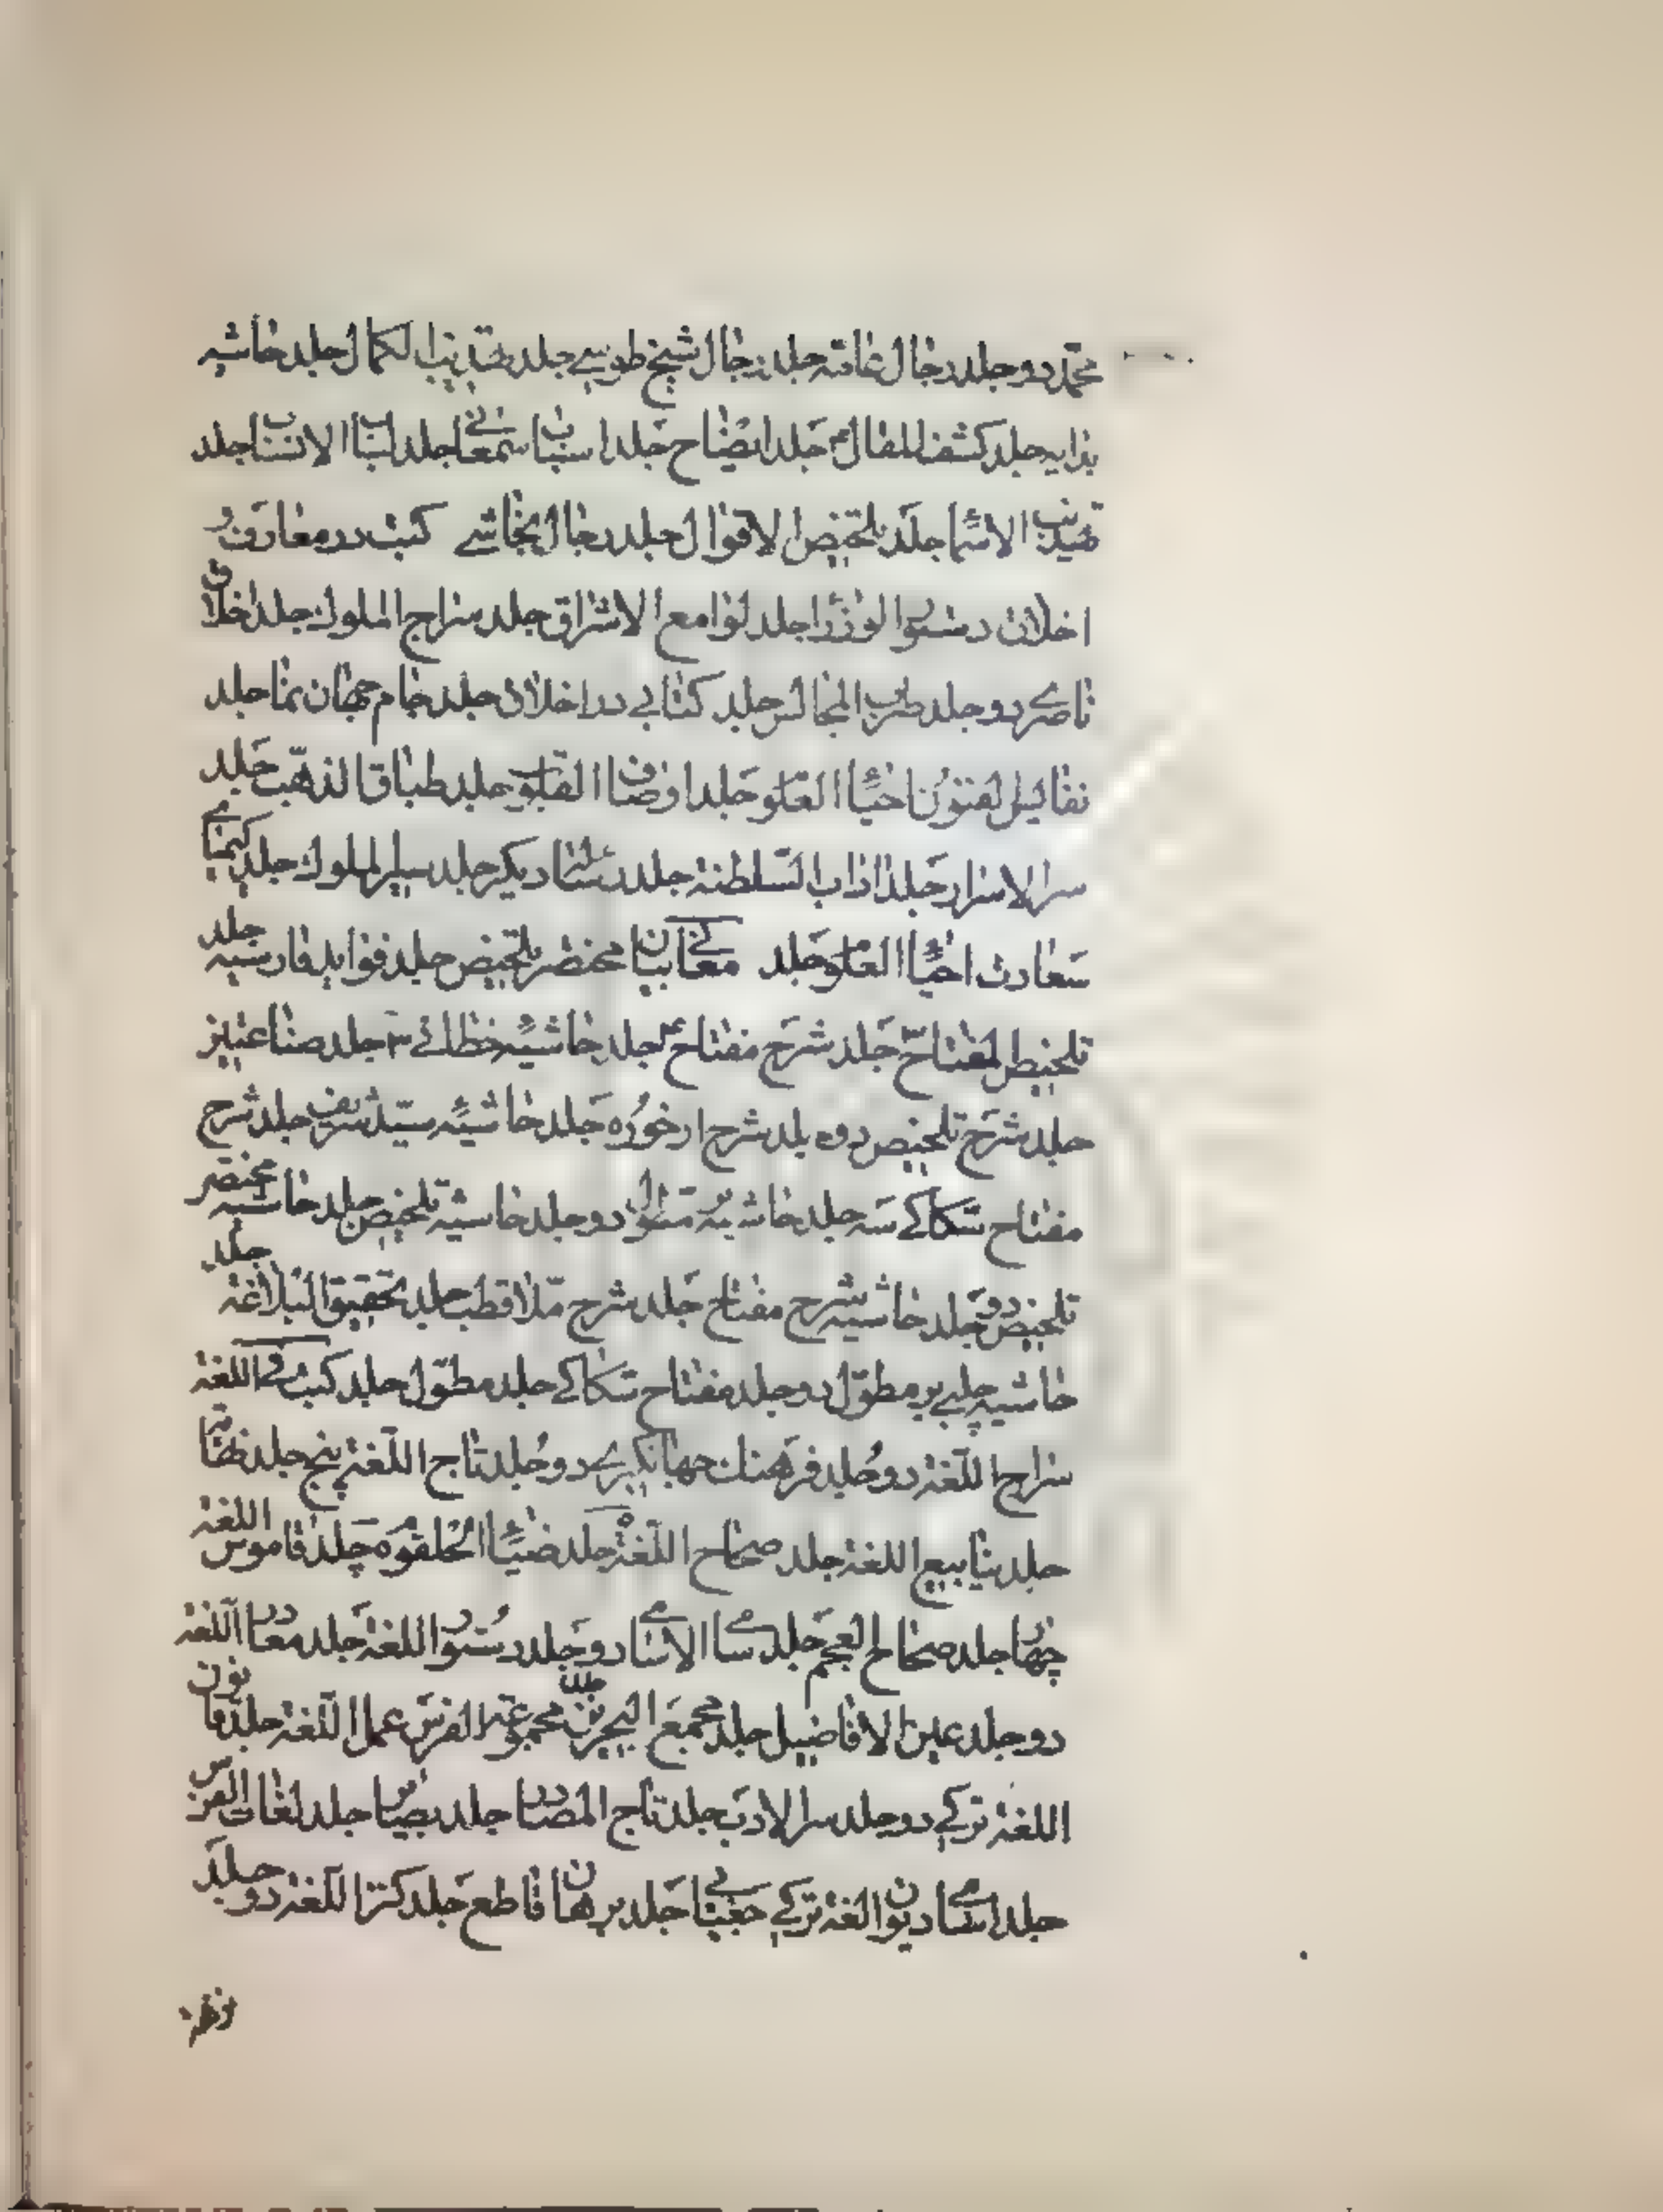 محمد دو جلد رجال عامّه جلد رجال شیخ طوسی جلد تهذیب الکمال جلد حاشیه
بدایه جلد کشف المقال جلد ایضاح جلد انساب سمعانی جلد لباب الانساب جلد
تهذیب الاسماء جلد تلخیص الاقوال جلد رجال نجاشی کتب در معارف و
اخلاق دستور الوزراء جلد لوامع الاشراق جلد سراج الملوک جلد اخلاق
ناصری دو جلد طرب المجالس جلد کتابی در اخلاق جلد جام جهان نما جلد
نفایس الفنون احیاء العلوم جلد اوصاف القلوب جلد طباق الذهب جلد
سر الاسرار جلد اداب السلطنة جلد رساله دیگر جلد سیر الملوک جلد کیمیای
سعادت احیاء العلوم جلد معانی بیان مختصر تلخیص جلد فواید فارسیه
تلخیص المفتاح جلد شرح مفتاح جلد حاشیه خطائی ۳ جلد
جلد شرح تلخیص دو جلد شرح ارجوزه جلد حاشیه سید شریف جلد شرح
مفتاح سکاکی سه جلد حاشیه مطول دو جلد حاشیه تلخیص جلد حاشیه مختصر
تلخیص دو جلد حاشیه شرح مفتاح جلد شرح ملا قطب جلد تحقیق البلاغة جلد
حاشیه چلبی بر مطوّل دو جلد مفتاح سکاکی جلد مطوّل جلد کتب فی اللغة
سراج اللغة دو جلد فرهنک جهانکیری دو جلد تاج اللغة پنج جلد نهایه
جلد ینابیع اللغة جلد صحاح اللغة جلد ضیاء الحلقوم جلد قاموس اللغة
چهار جلد صحاح العجم جلد سامی الاسامی دو جلد دستور اللغة جلد معیار اللغة
دو جلد عین الافاضل جلد مجمع البحرین جلد مجموعة الفرس مجمل اللغة جلد قانون
اللغة ترکی دو جلد سر الادب جلد تاج المصادر جلد جلد لغات الفرس
جلد اسامی دیوان لغة ترکی جغتای جلد برهان قاطع جلد کنز اللغة دو جلد